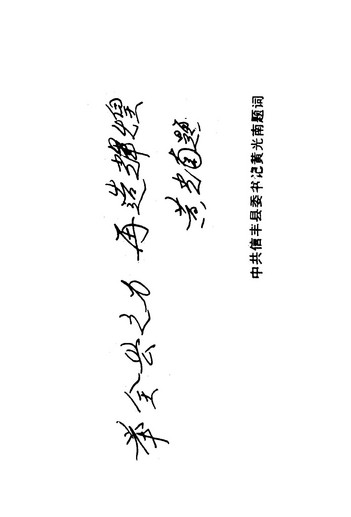 举全县之力 再造辉煌
黄光南题
中共信丰县委书记黄光南题词